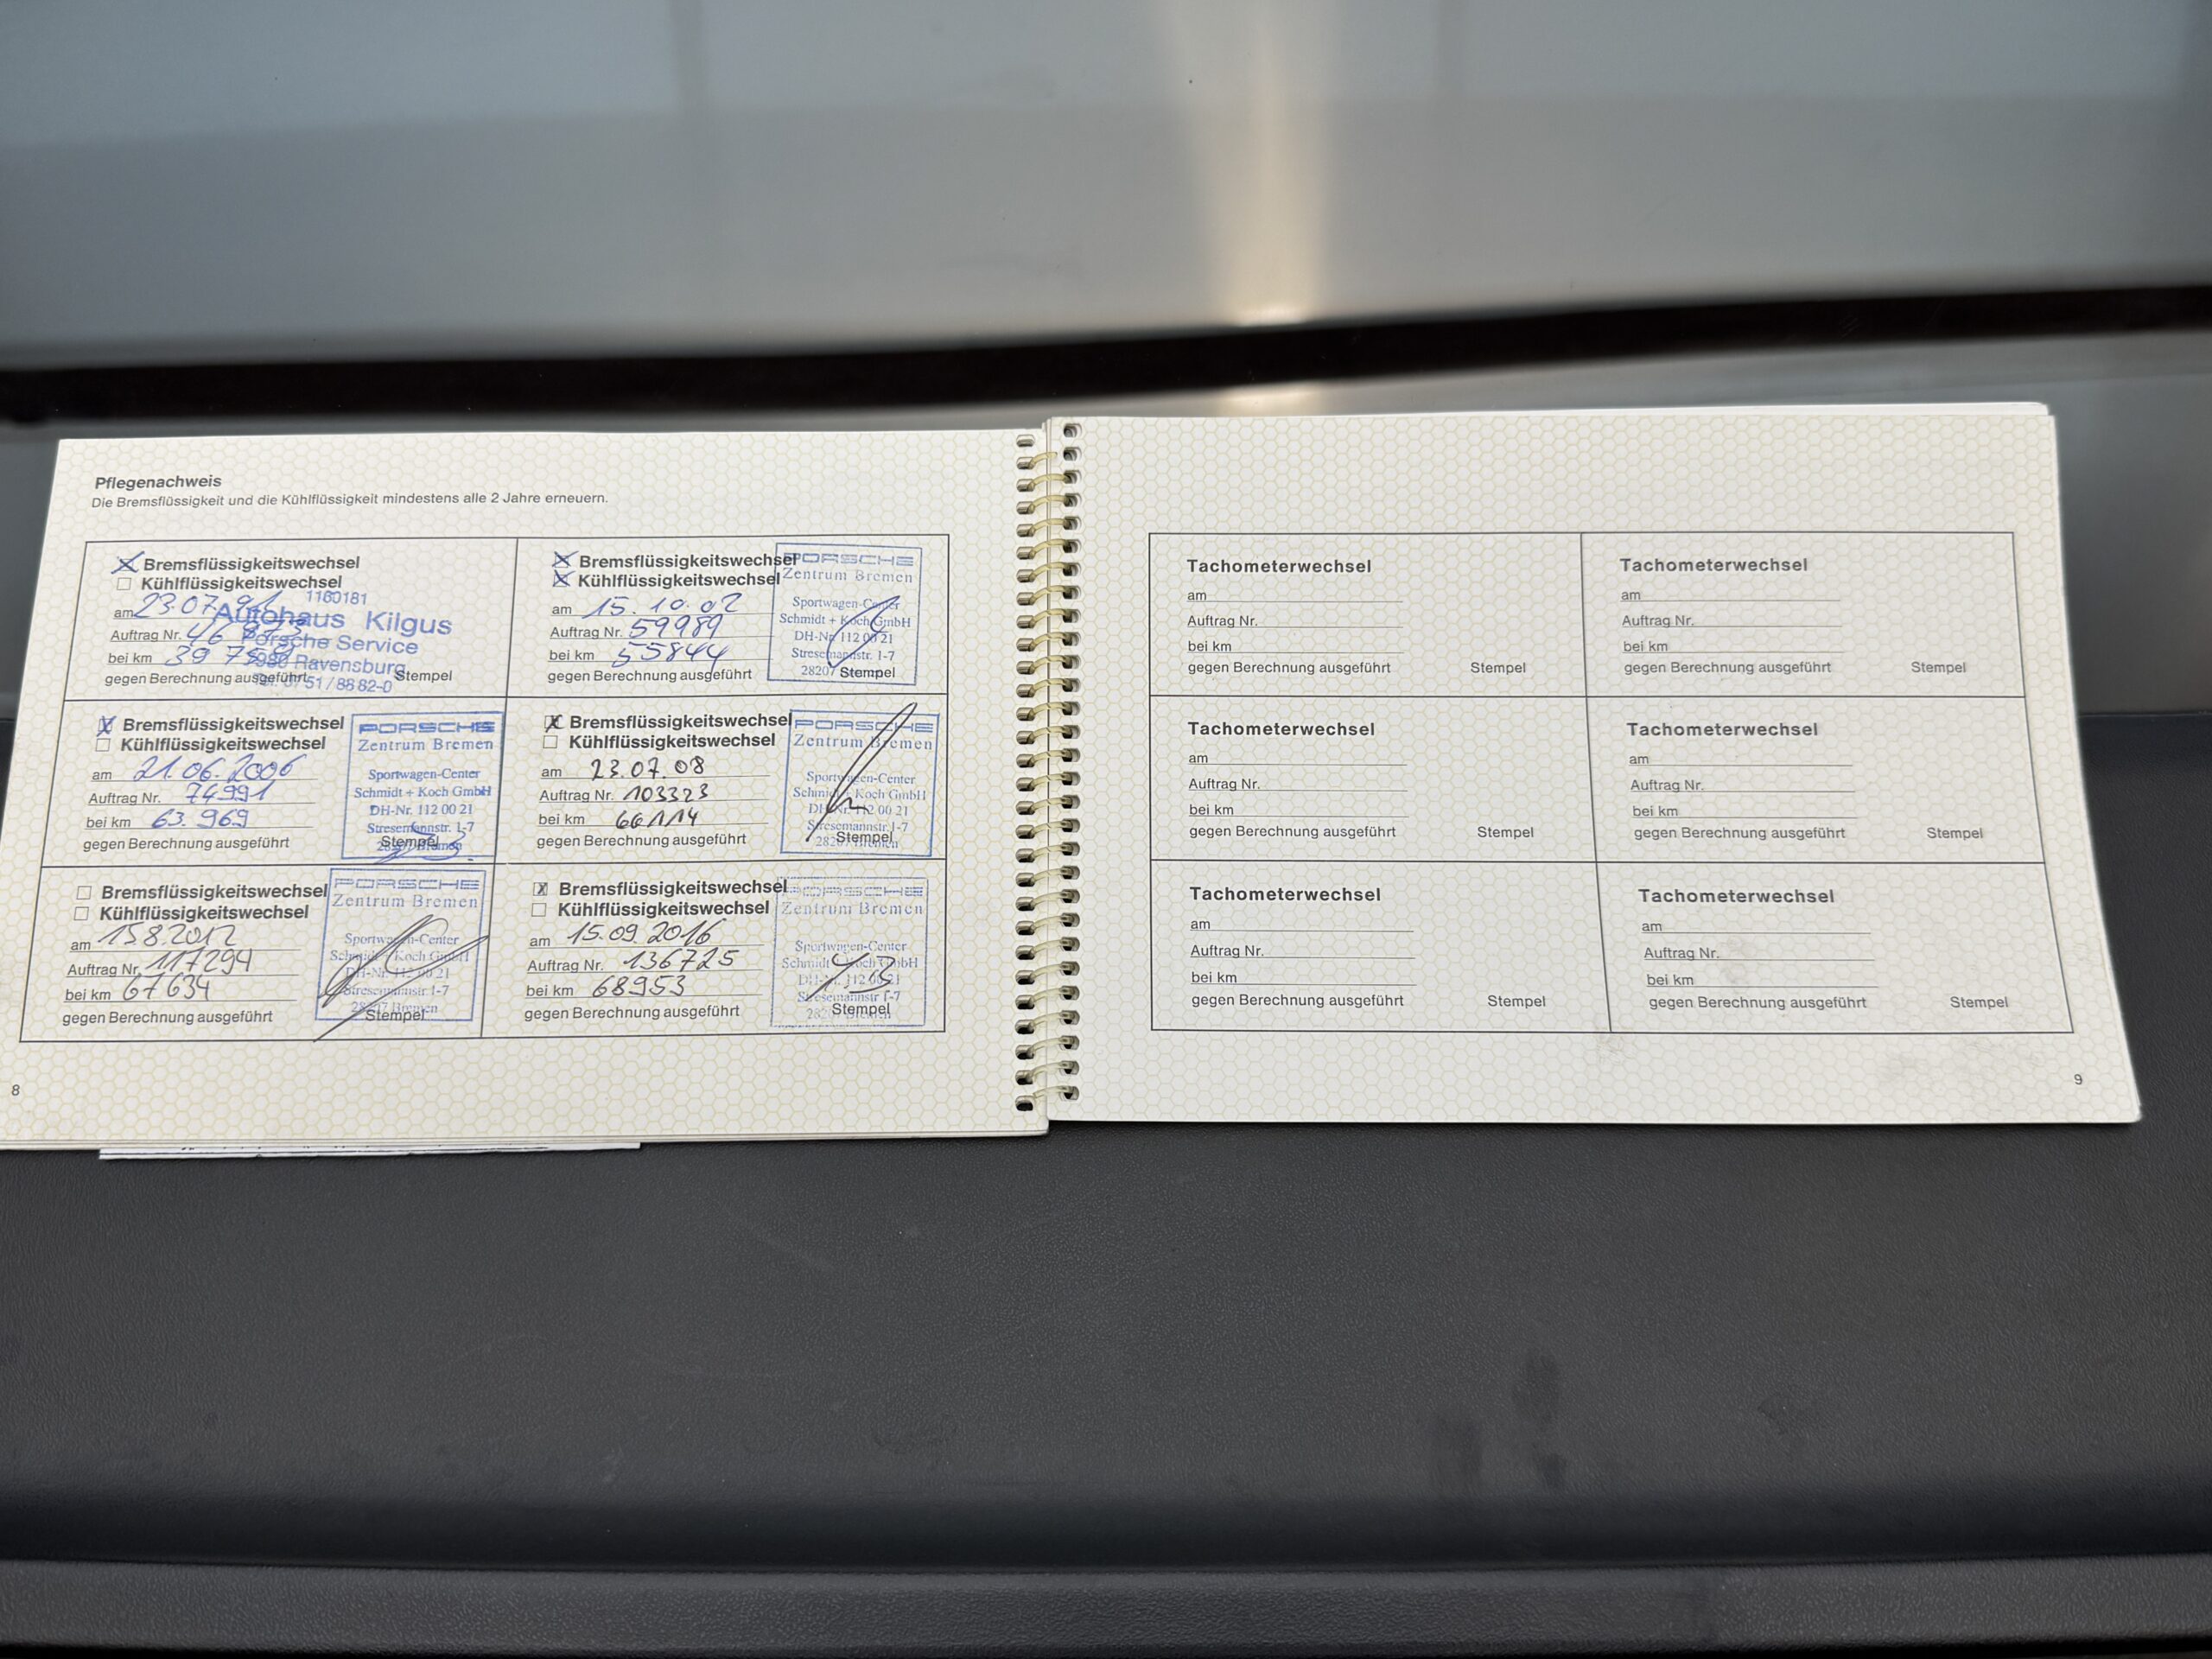 Pflegenachweis
Die Bremsflüssigkeit und die Kühlflüssigkeit mindestens alle 2 Jahre erneuern.
Bremsflüssigkeitswechsel
Kühlflüssigkeitswechsel
1160181
am 23.07.
Autohaus Kilgus
Auftrag Nr. 46
Porsche Service
bei km 39
Ravensburg
gegen Berechnung ausgeführt
Stempel
51/8882-0
Bremsflüssigkeitswechsel
Kühlflüssigkeitswechsel
am 15.10.02
Auftrag Nr. 59989
bei km 55844
gegen Berechnung ausgeführt
PORSCHE
Zentrum Bremen
Sportwagen-Center
Schmidt + Koch GmbH
DH-Nr. 112 00 21
Stresemannstr. 1-7
28207 Stempel
Bremsflüssigkeitswechsel
Kühlflüssigkeitswechsel
am 21.06.2006
Auftrag Nr. 74991
bei km 63.969
gegen Berechnung ausgeführt
PORSCHE
Zentrum Bremen
Sportwagen-Center
Schmidt + Koch GmbH
DH-Nr. 112 00 21
Stresemannstr. 1-7
Stempel
Bremen
Bremsflüssigkeitswechsel
Kühlflüssigkeitswechsel
am 23.07.08
Auftrag Nr. 103323
bei km 66114
gegen Berechnung ausgeführt
PORSCHE
Zentrum Bremen
Sportwagen-Center
Schmidt + Koch GmbH
DH-Nr. 112 00 21
Stresemannstr. 1-7
Stempel
28207 Bremen
Bremsflüssigkeitswechsel
Kühlflüssigkeitswechsel
am 15.8.2012
Auftrag Nr. 117294
bei km 67634
gegen Berechnung ausgeführt
PORSCHE
Zentrum Bremen
Sportwagen-Center
Schmidt + Koch GmbH
DH-Nr. 112 00 21
Stresemannstr. 1-7
28207 Bremen
Stempel
Bremsflüssigkeitswechsel
Kühlflüssigkeitswechsel
am 15.09.2016
Auftrag Nr. 136725
bei km 68953
gegen Berechnung ausgeführt
PORSCHE
Zentrum Bremen
Sportwagen-Center
Schmidt + Koch GmbH
DH-Nr. 112 00 21
Stresemannstr. 1-7
Stempel
Bremen
8
Tachometerwechsel
am
Auftrag Nr.
bei km
gegen Berechnung ausgeführt Stempel
Tachometerwechsel
am
Auftrag Nr.
bei km
gegen Berechnung ausgeführt Stempel
Tachometerwechsel
am
Auftrag Nr.
bei km
gegen Berechnung ausgeführt Stempel
Tachometerwechsel
am
Auftrag Nr.
bei km
gegen Berechnung ausgeführt Stempel
Tachometerwechsel
am
Auftrag Nr.
bei km
gegen Berechnung ausgeführt Stempel
Tachometerwechsel
am
Auftrag Nr.
bei km
gegen Berechnung ausgeführt Stempel
9